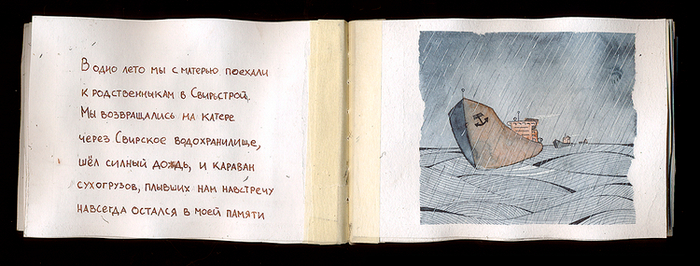 В одно лето мы с матерью поехали
к родственникам в Свирьстрой,
Мы возвращались на катере
через Свирское водохранилище,
шёл силный дождь, и караван
сухогрузов, плывших нам навстречу
навсегда остался в моей памяти